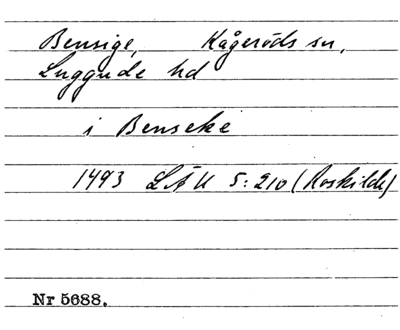 Bensige, Kågeröds sn,
Luggude hd
i Benseke
1493 LÄU 5:210 (Roskilde)
Nr 5688.